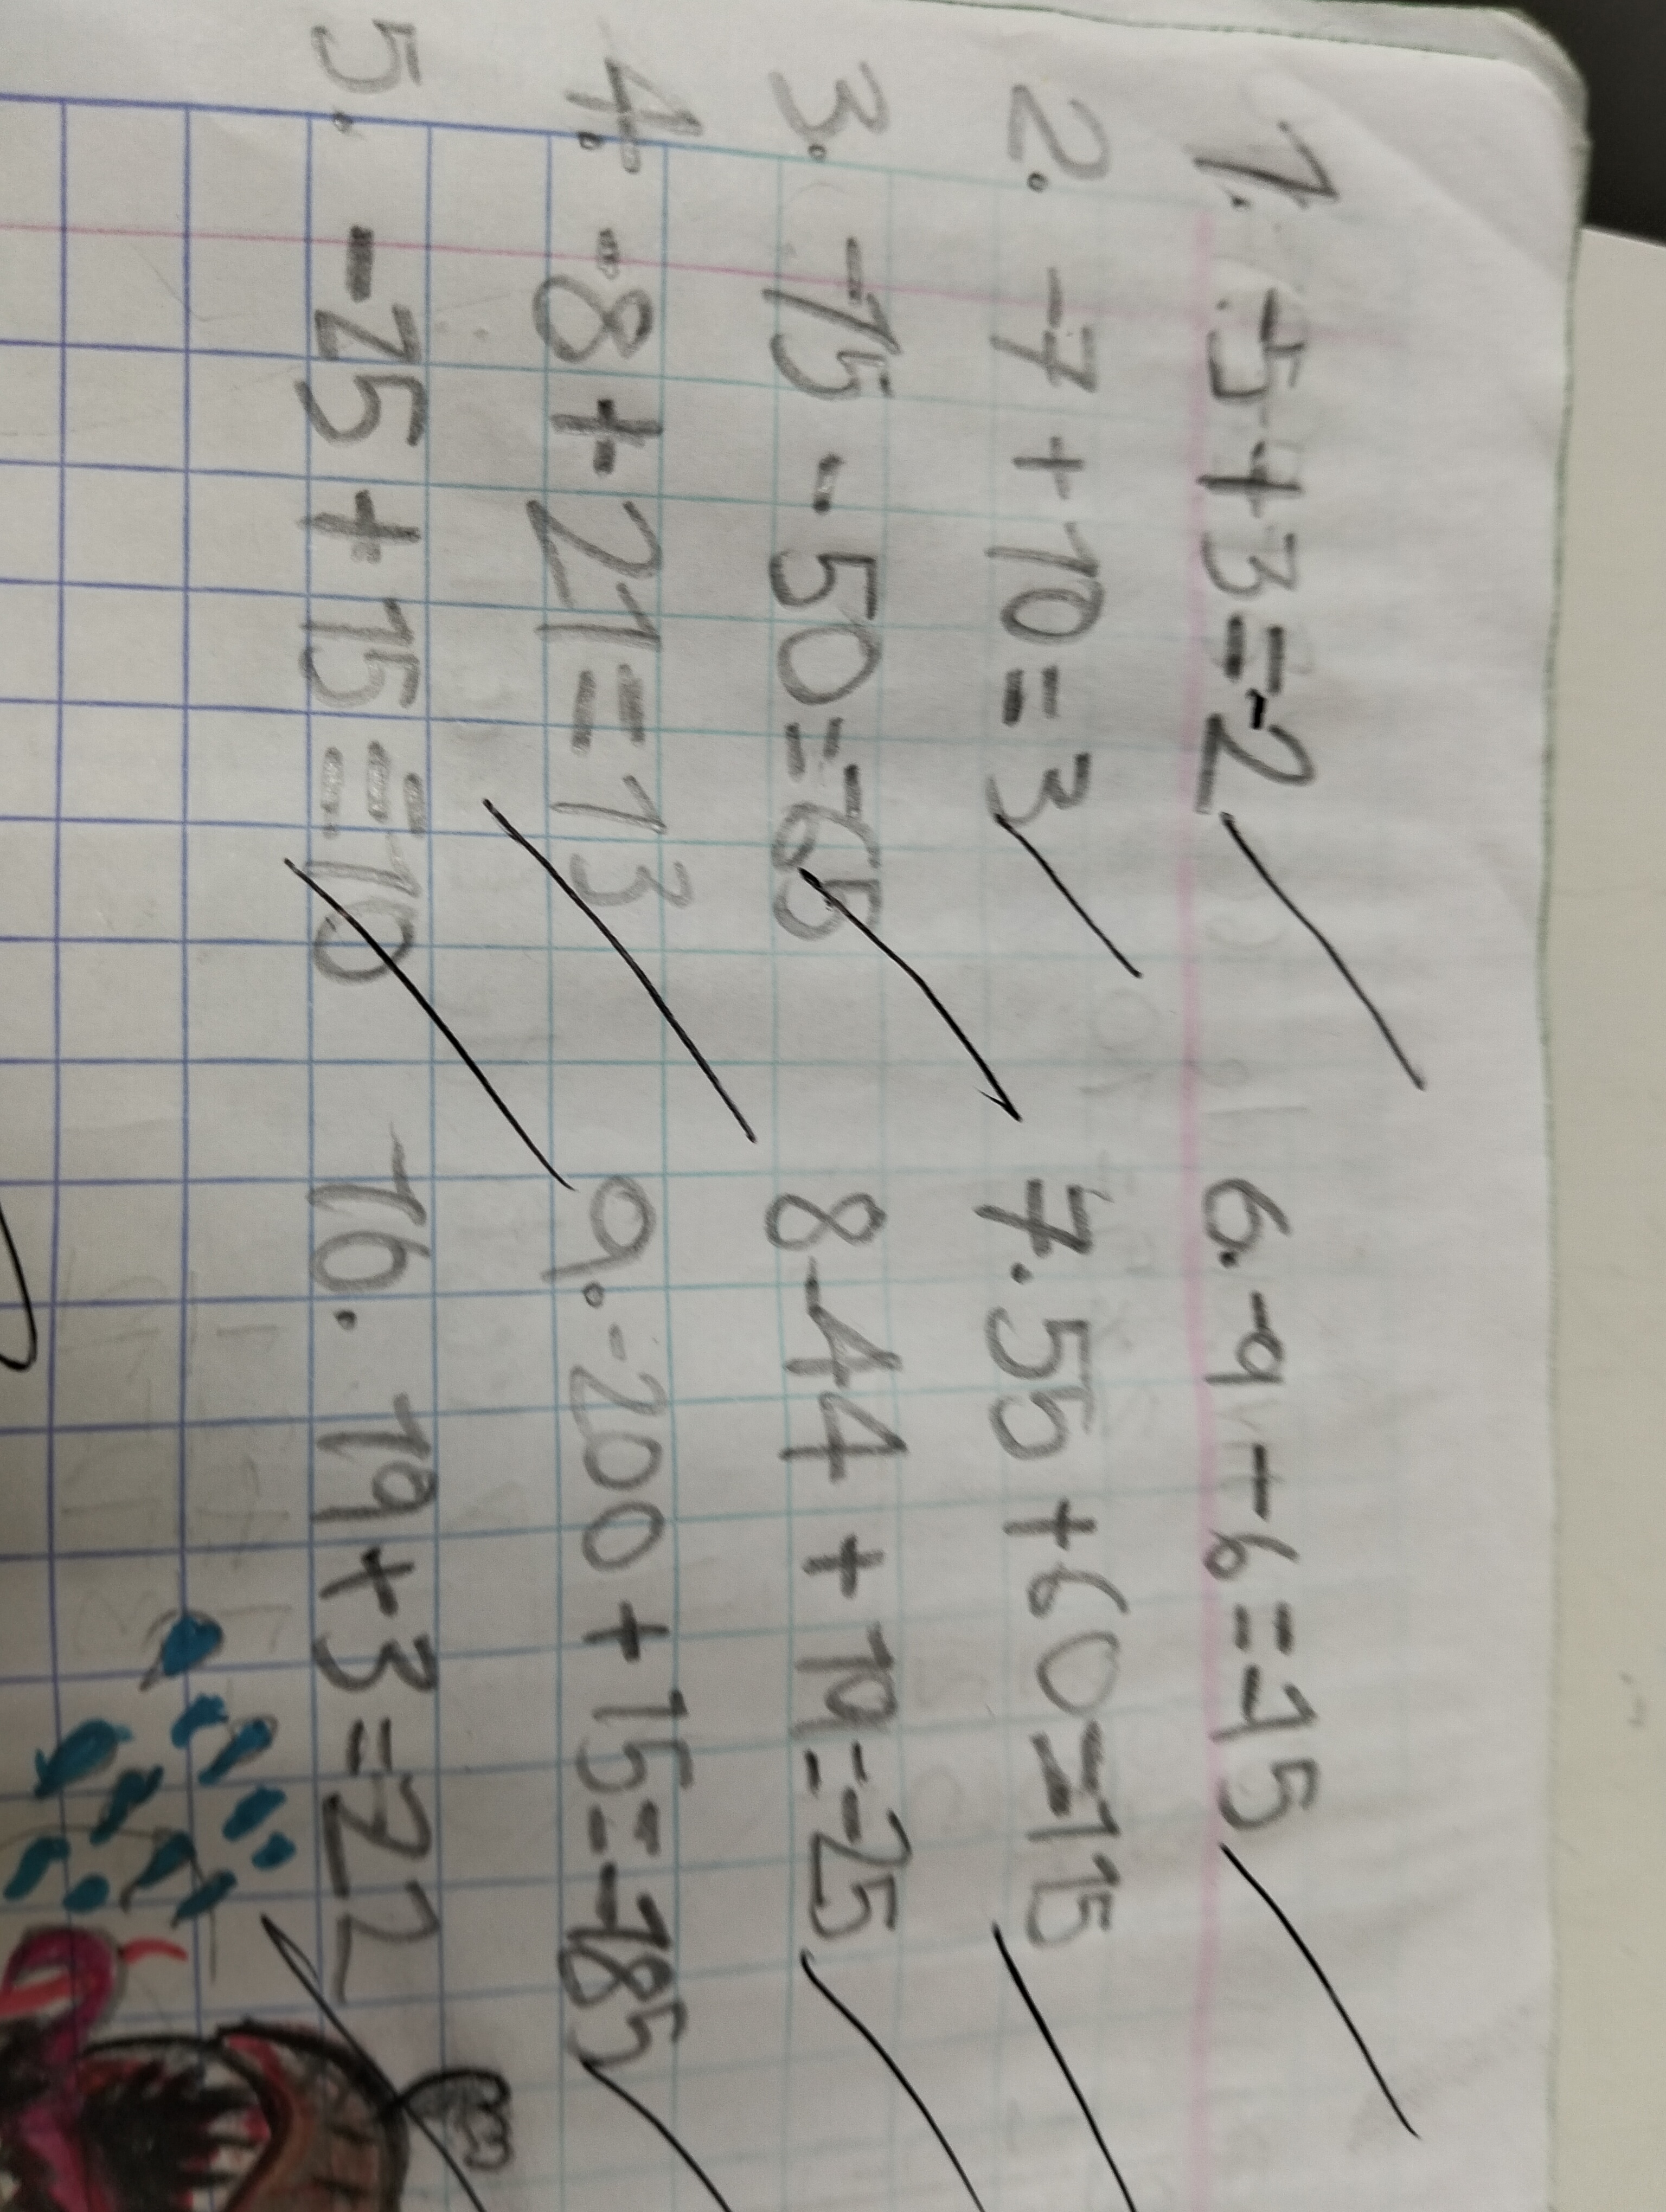 1. -5+3=-2
2. -7+10=3
3. -15-50=-65
4. -8+21=13
5. -25+15=-10
6. -9-6=-15
7. 55+60=115
8-44+19=-25
9. -200+15=-185
10. 19+3=22